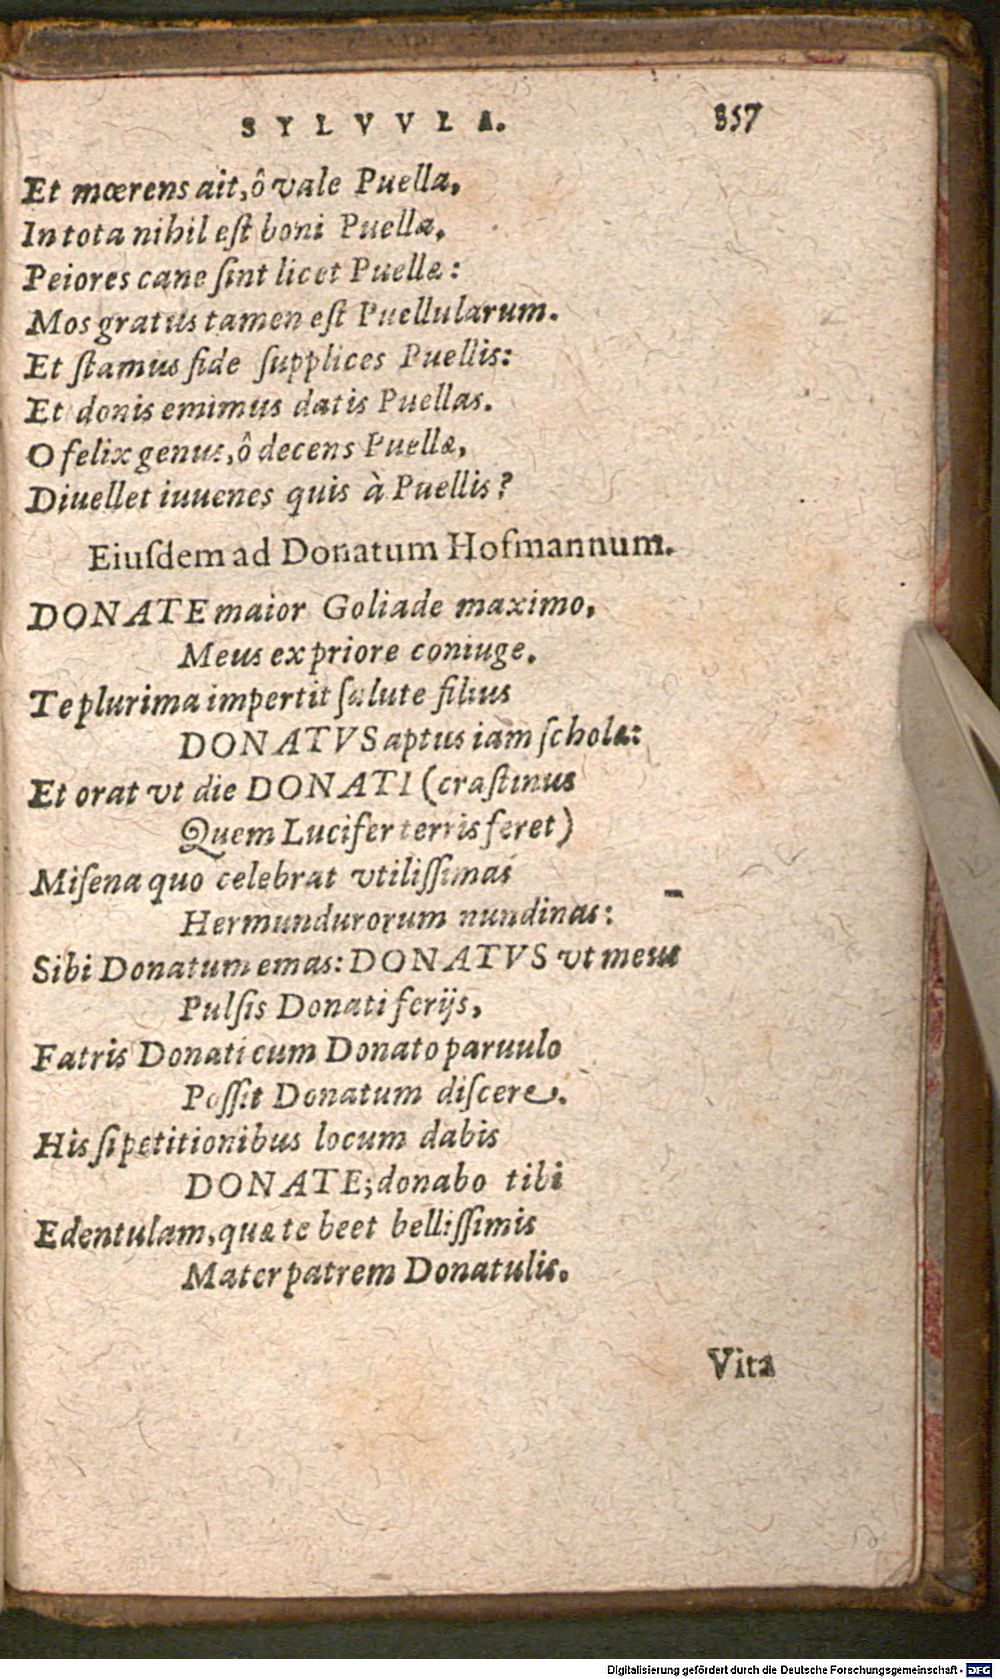 SYLVVLA. 857
Et mœrens ait, ô vale Puella,
In tota nihil eſt boni Puella,
Peiores cane ſint licet Puellæ:
Mos gratus tamen eſt Puellularum.
Et ſtamus fide ſupplices Puellis:
Et donis emimus datis Puellas.
O felix genus, ô decens Puellæ,
Diuellet iuuenes quis à Puellis?
Eiuſdem ad Donatum Hofmannum.
DONATE maior Goliade maximo,
Meus ex priore coniuge.
Te plurima impertit ſalute filius
DONATVS aptus iam ſcholæ:
Et orat vt die DONATI (craſtinus
Quem Lucifer terris feret)
Miſena quo celebrat vtiliſſimas
Hermundurorum nundinas:
Sibi Donatum emas: DONATVS vt meus
Pulſis Donati ferijs,
Fatris Donati cum Donato paruulo
Poſſit Donatum diſcere.
His ſi petitionibus locum dabis
DONATE; donabo tibi
Edentulam, quæ te beet belliſſimis
Mater patrem Donatulis.
Vita
Digitalisierung gefördert durch die Deutsche Forschungsgemeinschaft - DFG